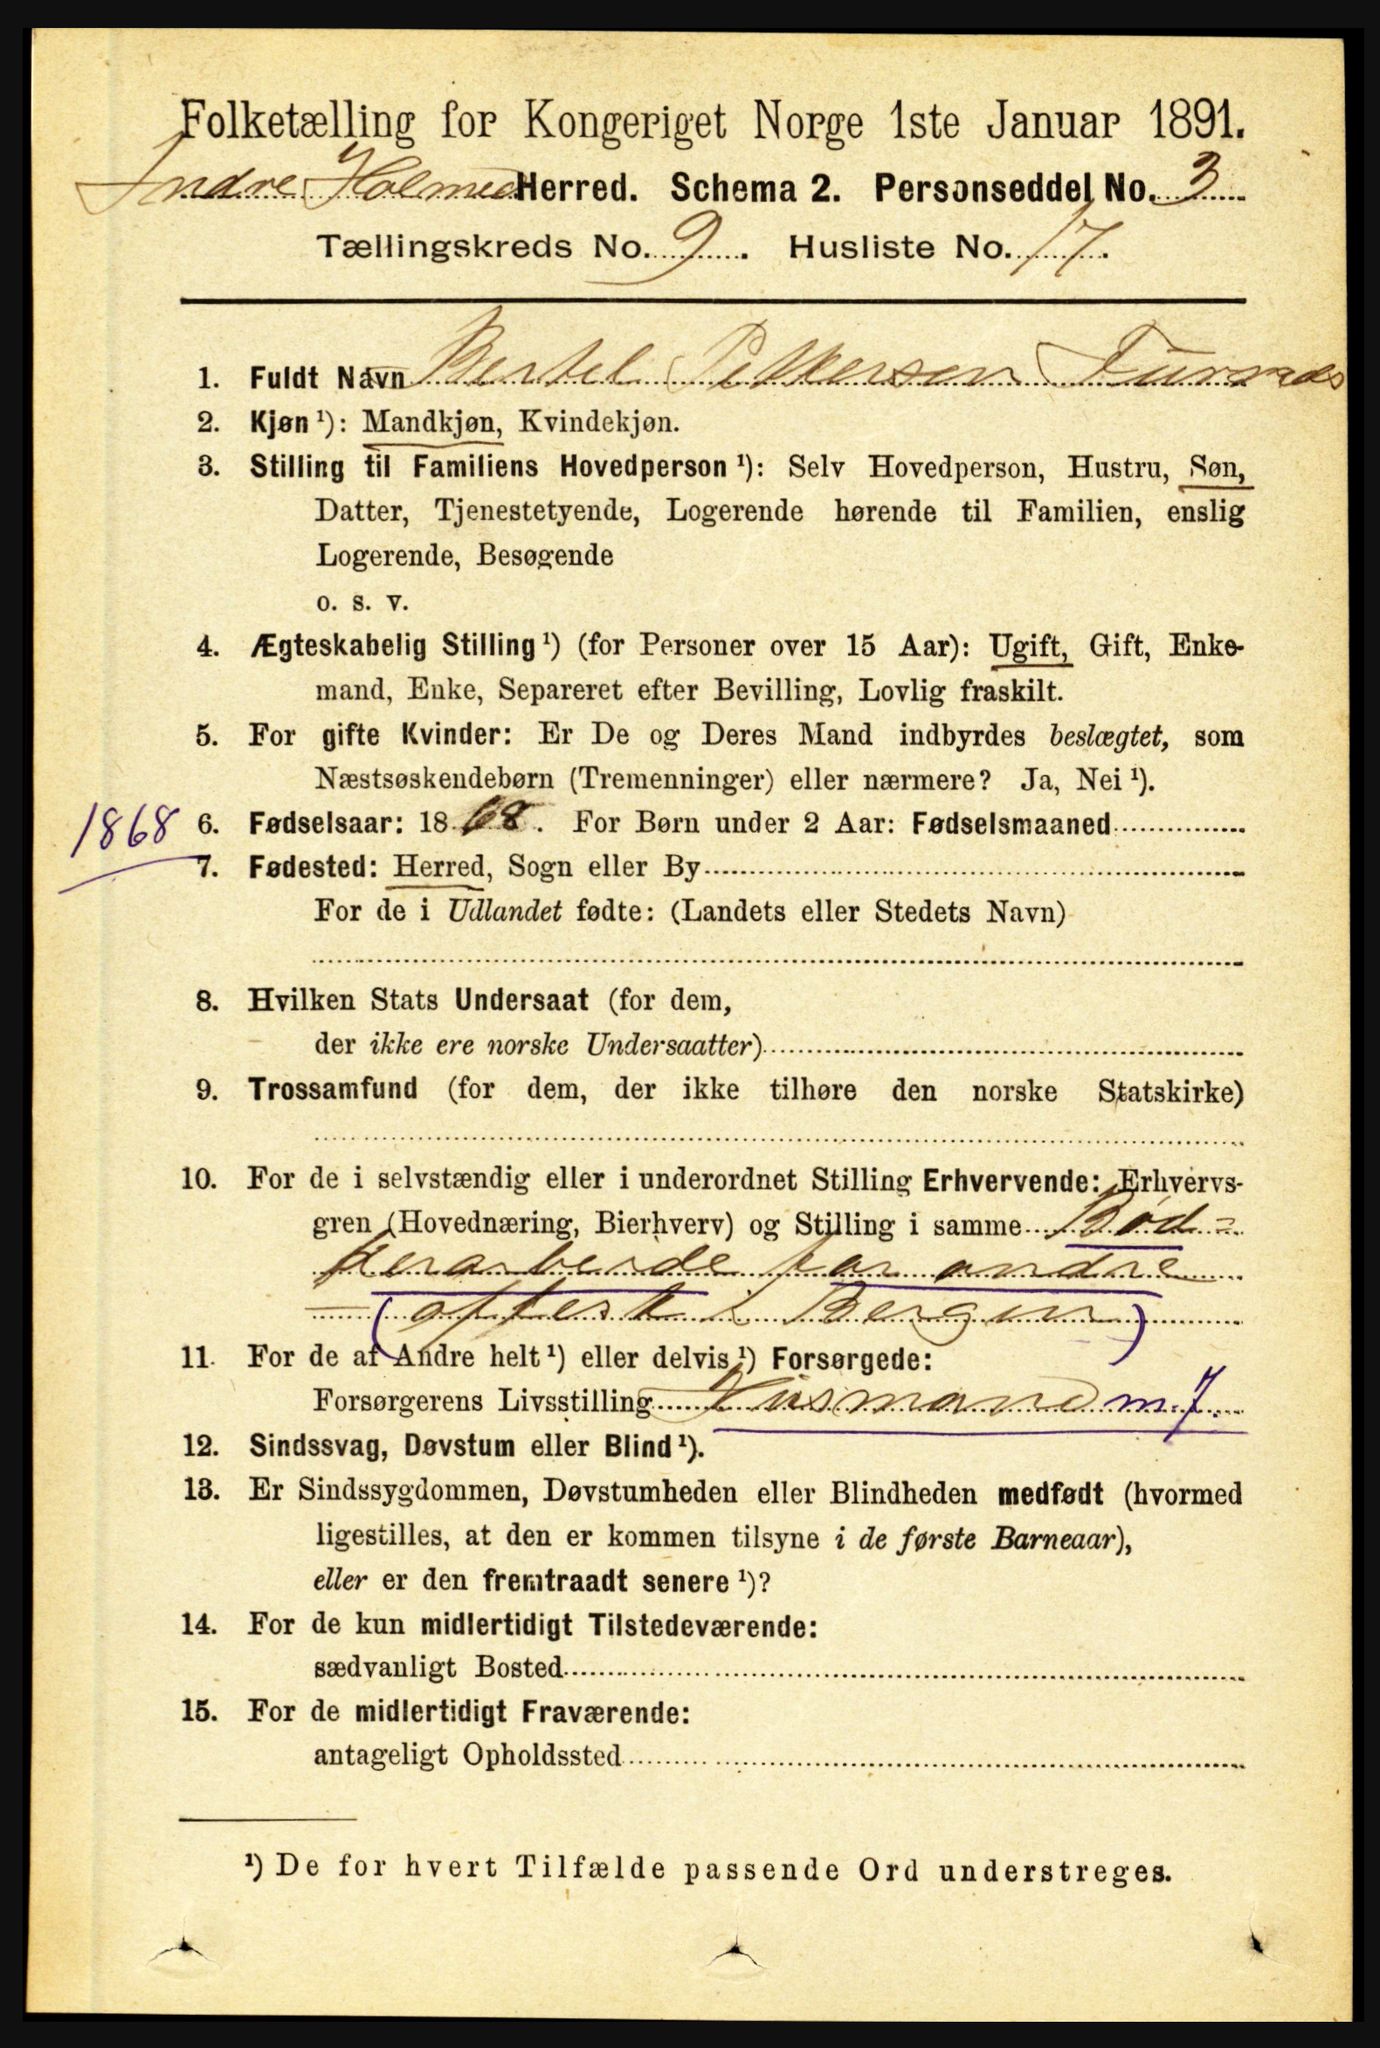 Folketælling for Kongeriget Norge 1ste Januar 1891.
Indre Holmedal Herred. Schema 2. Personseddel No. 3
Tællingskreds No. 9. Husliste No. 17.
1. Fuldt Navn Bertel Pettersen
2. Kjøn ¹): Mandkjøn, Kvindekjøn.
3. Stilling til Familiens Hovedperson ¹): Selv Hovedperson, Hustru, Søn,
Datter, Tjenestetyende, Logerende hørende til Familien, enslig
Logerende, Besøgende
o. s. v.
4. Ægteskabelig Stilling ¹) (for Personer over 15 Aar): Ugift, Gift, Enke-
mand, Enke, Separeret efter Bevilling, Lovlig fraskilt.
5. For gifte Kvinder: Er De og Deres Mand indbyrdes beslægtet, som
Næstsøskendebørn (Tremenninger) eller nærmere? Ja, Nei ¹).
1868
6. Fødselsaar: 1868. For Børn under 2 Aar: Fødselsmaaned
7. Fødested: Herred, Sogn eller By
For de i Udlandet fødte: (Landets eller Stedets Navn)
8. Hvilken Stats Undersaat (for dem,
der ikke ere norske Undersaatter)
9. Trossamfund (for dem, der ikke tilhøre den norske Statskirke)
10. For de i selvstændig eller i underordnet Stilling Erhvervende: Erhvervs-
gren (Hovednæring, Bierhverv) og Stilling i samme Bød-
kerarbeide for andre
(oftest i Bergen)
11. For de af Andre helt ¹) eller delvis ¹) Forsørgede:
Forsørgerens Livsstilling Husmand m. J.
12. Sindssvag, Døvstum eller Blind ¹).
13. Er Sindssygdommen, Døvstumheden eller Blindheden medfødt (hvormed
ligestilles, at den er kommen tilsyne i de første Barneaar),
eller er den fremtraadt senere ¹)?
14. For de kun midlertidigt Tilstedeværende:
sædvanligt Bosted
15. For de midlertidigt Fraværende:
antageligt Opholdssted
¹) De for hvert Tilfælde passende Ord understreges.